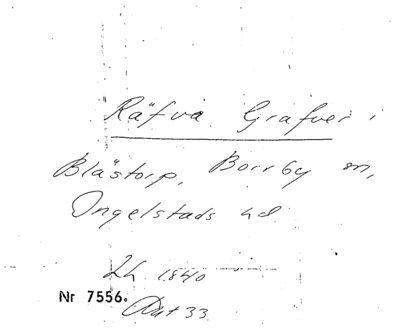 Räfva Grafver i
Blästorp, Borrby sn,
Ingelstads hd
Lh 1840
Nr 7556.
33